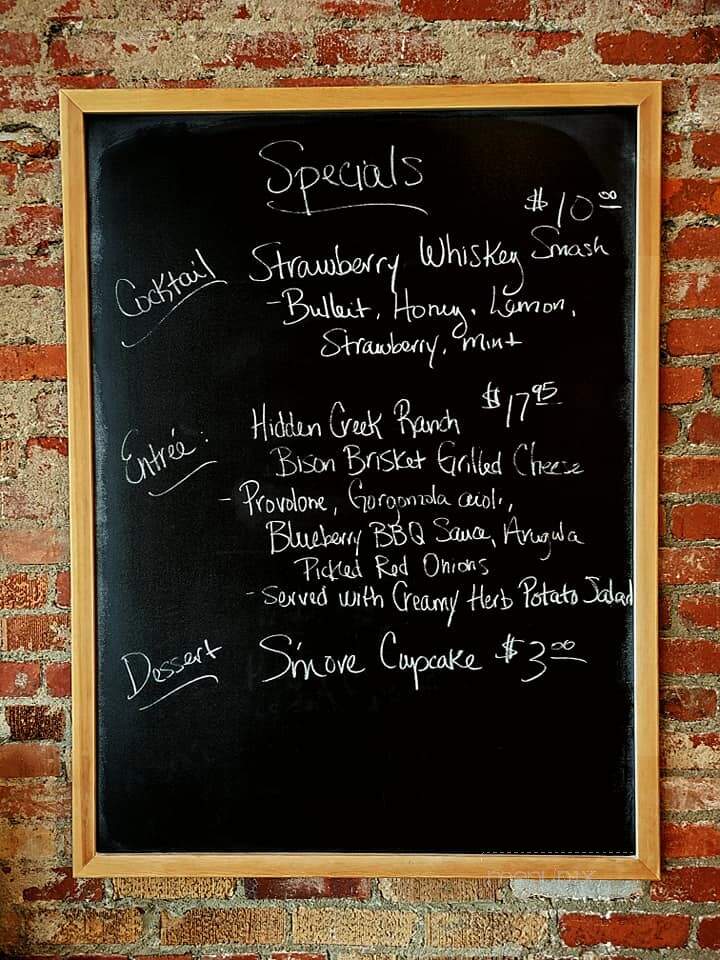 Specials
$10.00
Cocktail Strawberry Whiskey Smash
- Bulleit, Honey, Lemon,
Strawberry, mint
$17.95
Entrée: Hidden Creek Ranch
Bison Brisket Grilled Cheese
- Provolone, Gorgonzola aioli,
Blueberry BBQ Sauce, Arugula
Pickled Red Onions
- Served with Creamy Herb Potato Salad
Dessert S'more Cupcake $3.00